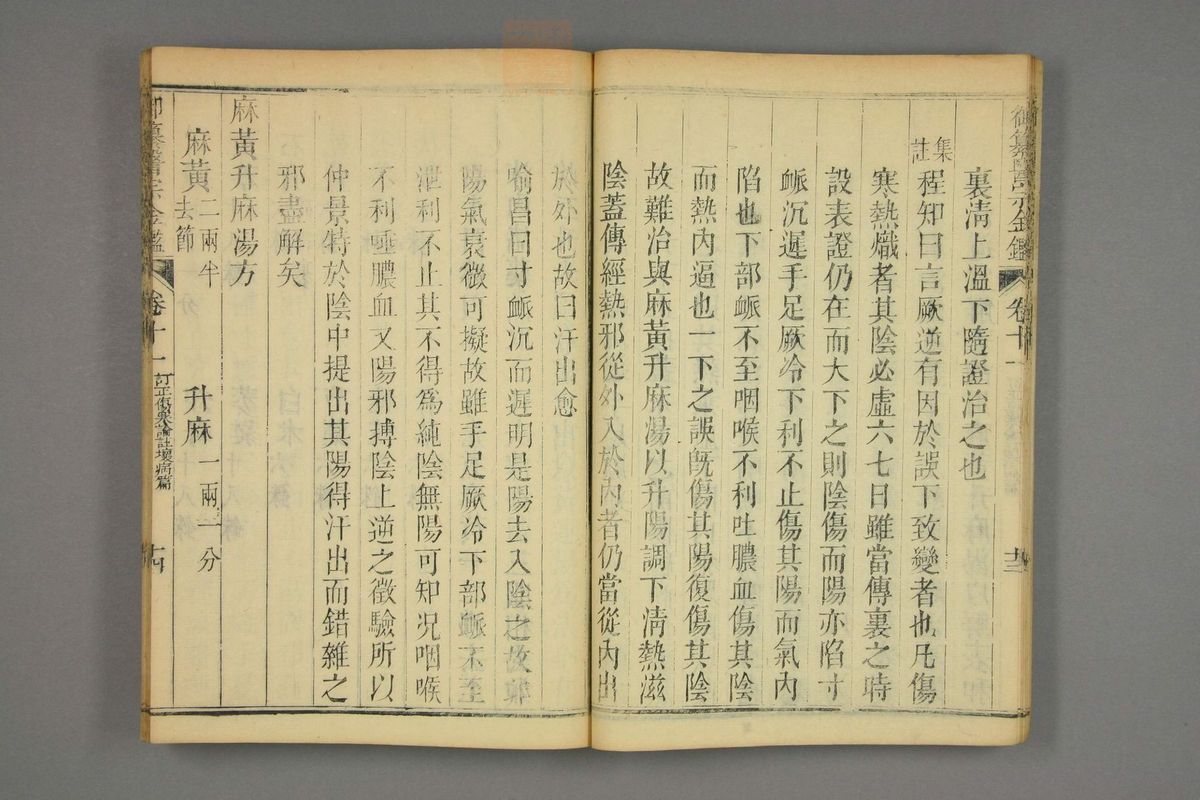 御纂醫宗金鑑 卷十一 十三
裏淸上溫下隨證治之也
集註
程知曰言厥逆有因於誤下致變者也凡傷
寒熱熾者其陰必虛六七日雖當傳裏之時
設表證仍在而大下之則陰傷而陽亦陷寸
脈沉遲手足厥冷下利不止傷其陽而氣內
陷也下部脈不至咽喉不利吐膿血傷其陰
而熱內逼也一下之誤旣傷其陽復傷其陰
故難治與麻黃升麻湯以升陽調下淸熱滋
陰蓋傳經熱邪從外入於內者仍當從內出
於外也故曰汗出愈
喻昌曰寸脈沉而遲明是陽去入陰之故非
陽氣衰微可擬故雖手足厥冷下部脈不至
泄利不止其不得爲純陰無陽可知況咽喉
不利唾膿血又陽邪搏陰上逆之徵驗所以
仲景特於陰中提出其陽得汗出而錯雜之
邪盡解矣
麻黃升麻湯方
麻黃二兩半去節 升麻一兩一分
御纂醫宗金鑑 卷十一 訂正傷寒論註壞病篇 十四